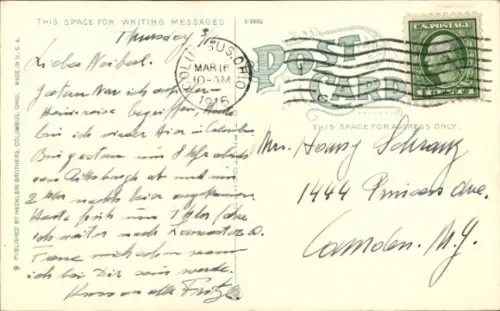 THIS SPACE FOR WRITING MESSAGES
A-2902
Thursday 3/
Liebes Weibel.
Gestern war ich auf der
Heimreise begriffen, heute
bin ich wieder hier in Columbus
Bin gestern um 8 Uhr abends
von Pittsburgh ab und um
2 Uhr nachts hier angekommen.
Heute früh um 7 Uhr fahre
ich weiter nach Lancaster O.
Freue mich schon wenn
ich bei Dir sein werde.
Kuss an alle Fritz.
COLUMBUS, OHIO
MAR 16
10-AM
1916
POST
CARD
U.S. POSTAGE
THIS SPACE FOR ADDRESS ONLY.
Mrs. Schranz
1444 Princess Ave.
Camden. N.J.
9 PUBLISHED BY HECKLEIN BROTHERS, COLUMBUS, OHIO. MADE IN U.S.A.